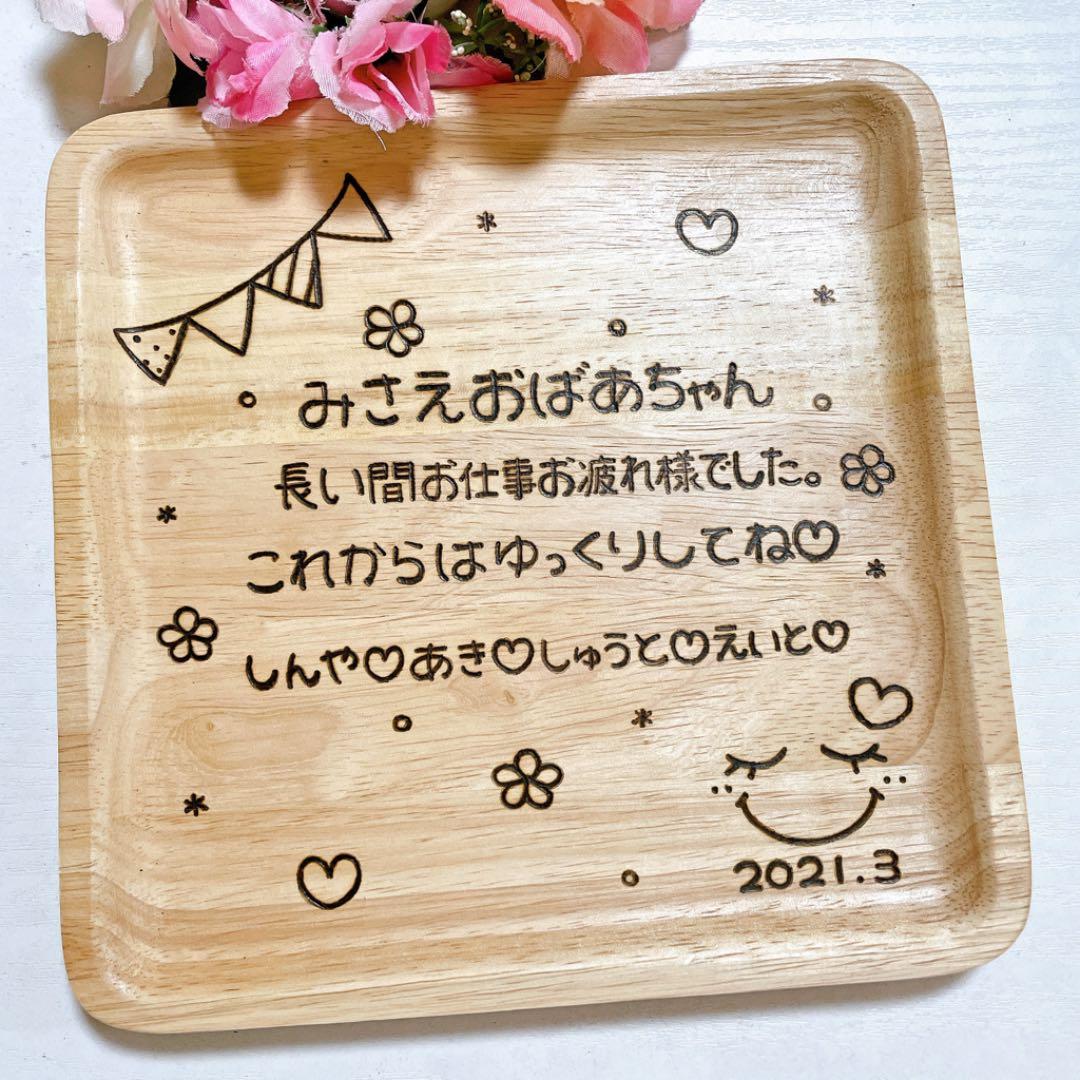 みさえおばあちゃん
長い間お仕事お疲れ様でした。
これからはゆっくりしてね♡
しんや♡あき♡しゅうと♡えいと♡
2021.3